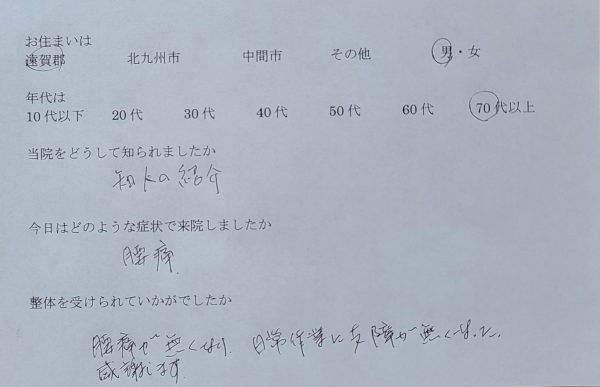 お住まいは
遠賀郡 北九州市 中間市 その他 男・女
年代は
10代以下 20代 30代 40代 50代 60代 70代以上
当院をどうして知られましたか
知人の紹介
今日はどのような症状で来院しましたか
腰痛
整体を受けられていかがでしたか
腰痛が無くなり、日常作業に支障が無くなった。
感謝します